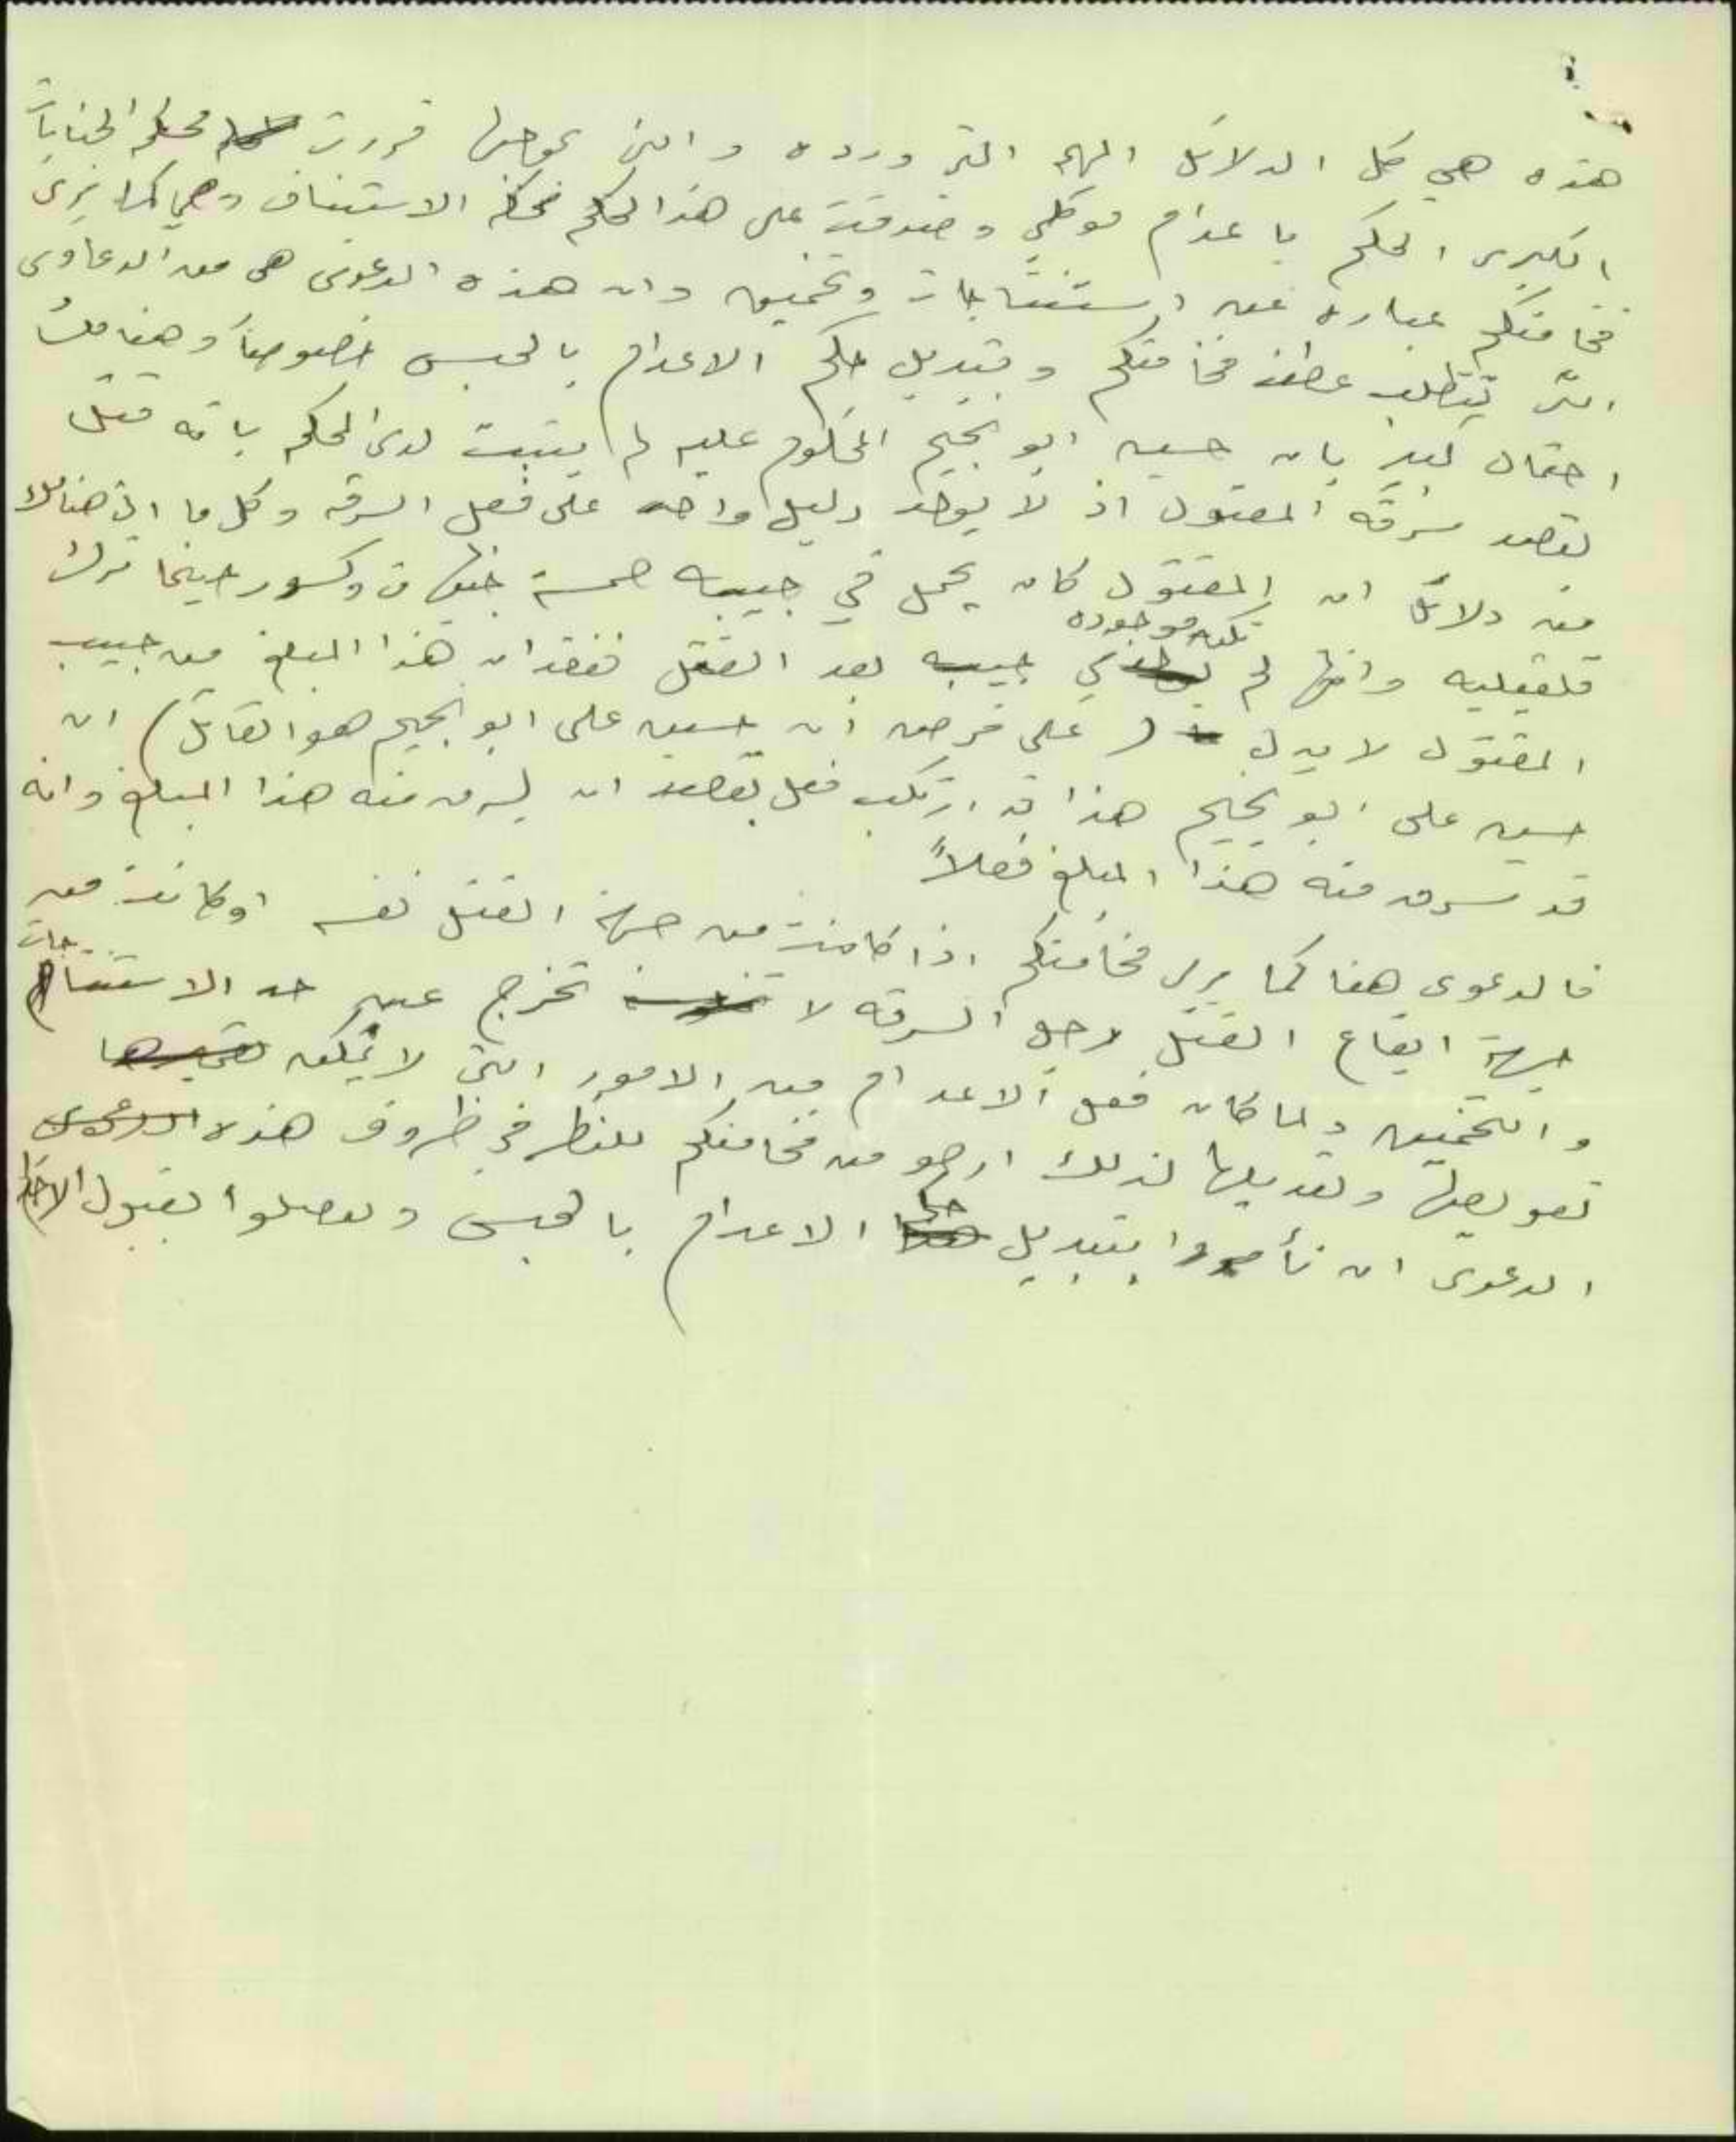 هذه هي كل الدلائل المهمة التي وردت والتي بموجبها قررت محكمة الجنايات
الكبرى الحكم باعدام موكلي وصدقت على هذا الحكم محكمة الاستيناف وهي كما ترى
فخامتكم عبارة عن استنتاجات وتخمين وان هذه الدعوى هي من الدعاوى
التي تتطلب عطف فخامتكم وتبديل حكم الاعدام بالحبس خصوصاً وهنالك
احتمال كبير بان حسين ابو بجيح المحكوم عليه لم يثبت لدى المحكمة بانه قتل
بقصد سرقة المقتول اذ لا يوجد دليل واحد على فعل السرقة وكل ما اتى هنالك
من دلائل ان المقتول كان يحمل في جيبه خمسة جنيهات وكسور حينما ترك
قلقيليه وانها لم تكن موجودة في جيبه بعد القتل ففقدان هذا المبلغ من جيب
المقتول لا يدل (على فرض ان حسين علي ابو بجيح هو القاتل) ان
حسين علي ابو بجيح هذا قد ارتكب فعل بقصد ان يسرق منه هذا المبلغ وانه
قد سرق منه هذا المبلغ فعلاً
فالدعوى هنا كما يرى فخامتكم اذا كانت من جهة القتل نفسه او كانت من
جهة ايقاع القتل لاجل السرقة لا تخرج عن حد الاستنتاجات
والتخمين ولما كان فعل الاعدام من الامور التي لا يمكن
تعويضها وتعديلها لذلك ارجو من فخامتكم للنظر في ظروف هذه الدعوى
الدعوى ان تأمروا بتبديل حكم الاعدام بالحبس وتفضلوا بقبول الاحترام